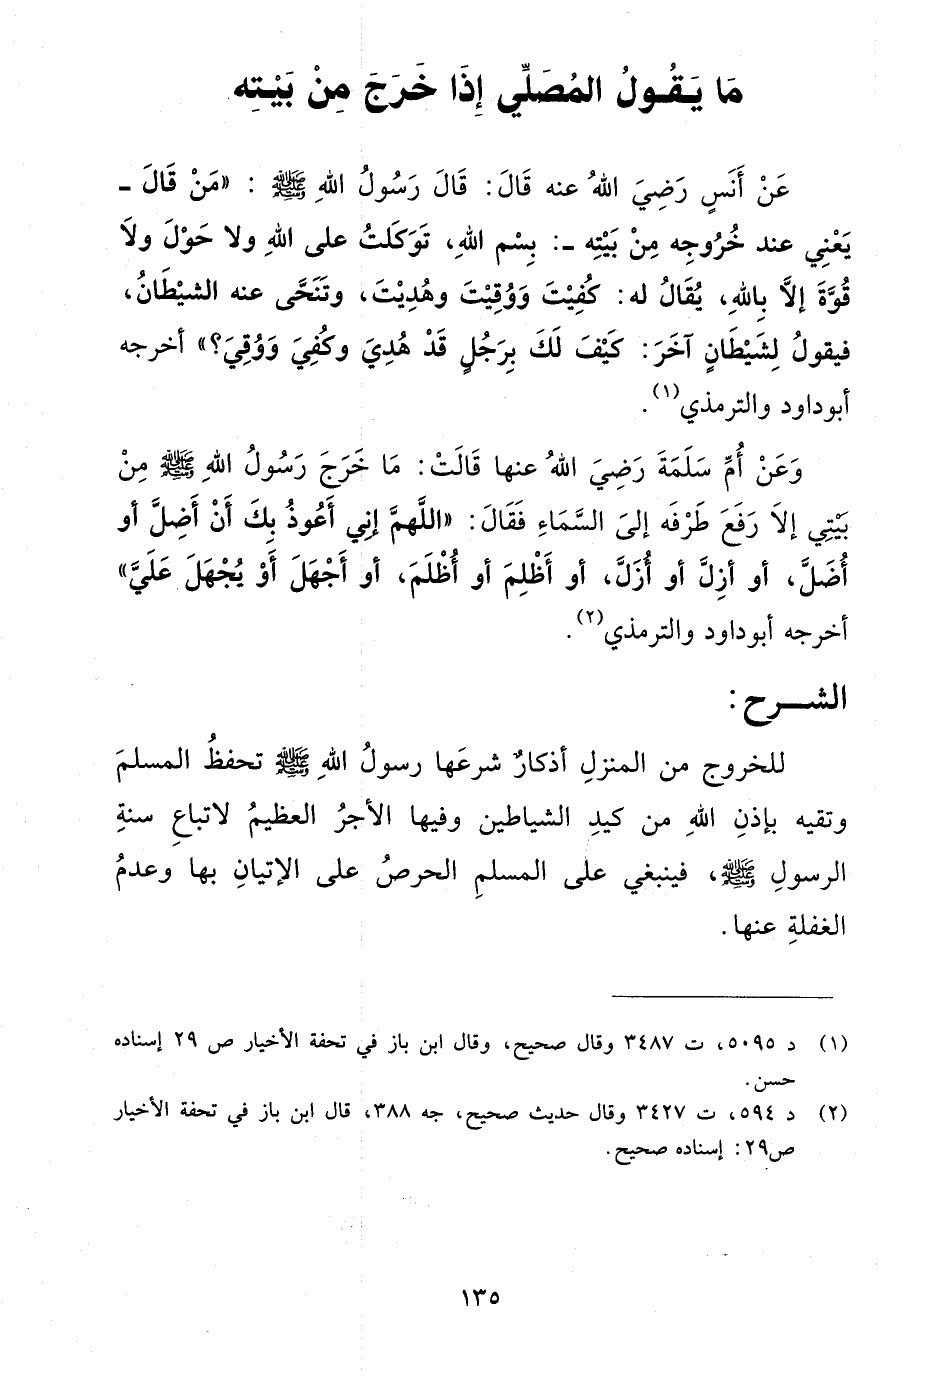 مَا يَـقُـولُ المُصَلِّي إِذَا خَرَجَ مِنْ بَيْـتِه
عَنْ أَنَسٍ رَضِيَ اللهُ عنه قَالَ: قَالَ رَسُولُ اللهِ ﷺ : «مَنْ قَالَ ـ
يَعْنِي عند خُرُوجِه مِنْ بَيْتِه ـ: بِسْم اللهِ، تَوَكَلتُ على اللهِ ولا حَوْلَ ولاَ
قُوَّةَ إلاَّ بِاللهِ، يُقَالُ له: كُفِيْتَ وَوُقِيْتَ وهُدِيْتَ، وتَنَحَّى عنه الشيْطَانُ،
فيقولُ لِشَيْطَانٍ آخَرَ: كَيْفَ لَكَ بِرَجُلٍ قَدْ هُدِيَ وكُفِيَ وَوُقِيَ؟» أخرجه
أبوداود والترمذي(١).
وَعَنْ أُمِّ سَلَمَةَ رَضِيَ اللهُ عنها قَالَتْ: مَا خَرَجَ رَسُولُ اللهِ ﷺ مِنْ
بَيْتِي إلاَ رَفَعَ طَرْفَه إلىَ السَّمَاءِ فَقَالَ: «اللَّهمَّ إنِي أَعُوذُ بِكَ أَنْ أَضِلَّ أو
أُضَلَّ، أو أزِلَّ أو أُزَلَّ، أو أظْلِمَ أو أُظْلَمَ، أو أَجْهَلَ أَوْ يُجْهَلَ عَلَيَّ»
أخرجه أبوداود والترمذي(٢).
الشــرح:
للخروج من المنزلِ أذكارٌ شرعَها رسولُ اللهِ ﷺ تحفظُ المسلمَ
وتقيه بإذنِ اللهِ من كيدِ الشياطين وفيها الأجرُ العظيمُ لاتباعِ سنةِ
الرسولِ ﷺ، فينبغي على المسلمِ الحرصُ على الإتيانِ بها وعدمُ
الغفلةِ عنها.
(١) د ٥٠٩٥، ت ٣٤٨٧ وقال صحيح، وقال ابن باز في تحفة الأخيار ص ٢٩ إسناده
حسن.
(٢) د ٥٩٤، ت ٣٤٢٧ وقال حديث صحيح، جه ٣٨٨، قال ابن باز في تحفة الأخيار
ص٢٩: إسناده صحيح.
١٣٥